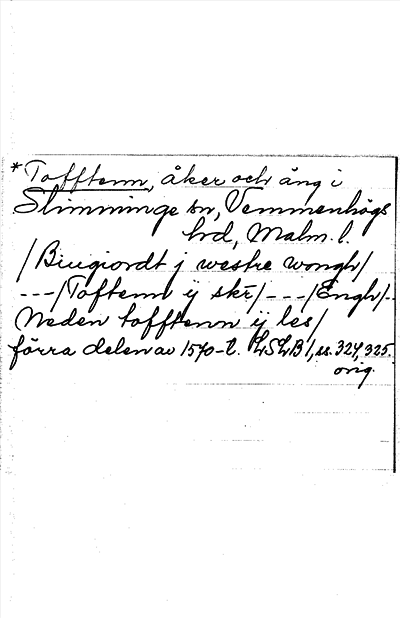 * Tofftenn, åker och äng i
Slimminge sn, Vemmenhögs
hd, Malm. l.
/Biugiordt j westre wongh/
---/Toftenn ij skr/---/Engh/--
Neden tofftenn ij les/
förra delen av 1570-t. LSLB1, ss. 324, 325.
orig.